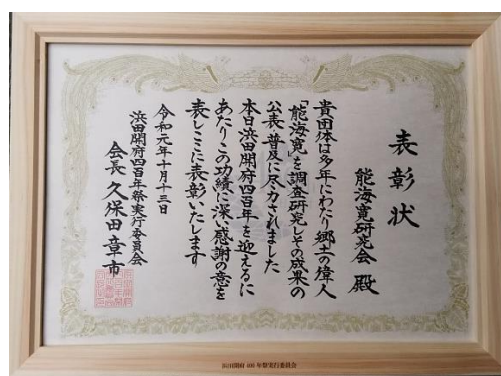 表彰状
能海寛研究会 殿
貴団体は多年にわたり郷土の偉人
「能海寛」を調査研究しその成果の
公表・普及に尽力されました
本日浜田開府四百年を迎えるに
あたりこの功績に深い感謝の意を
表しここに表彰いたします
令和元年十月十三日
浜田開府四百年祭実行委員会
会長 久保田章市
浜田開府400年祭実行委員会